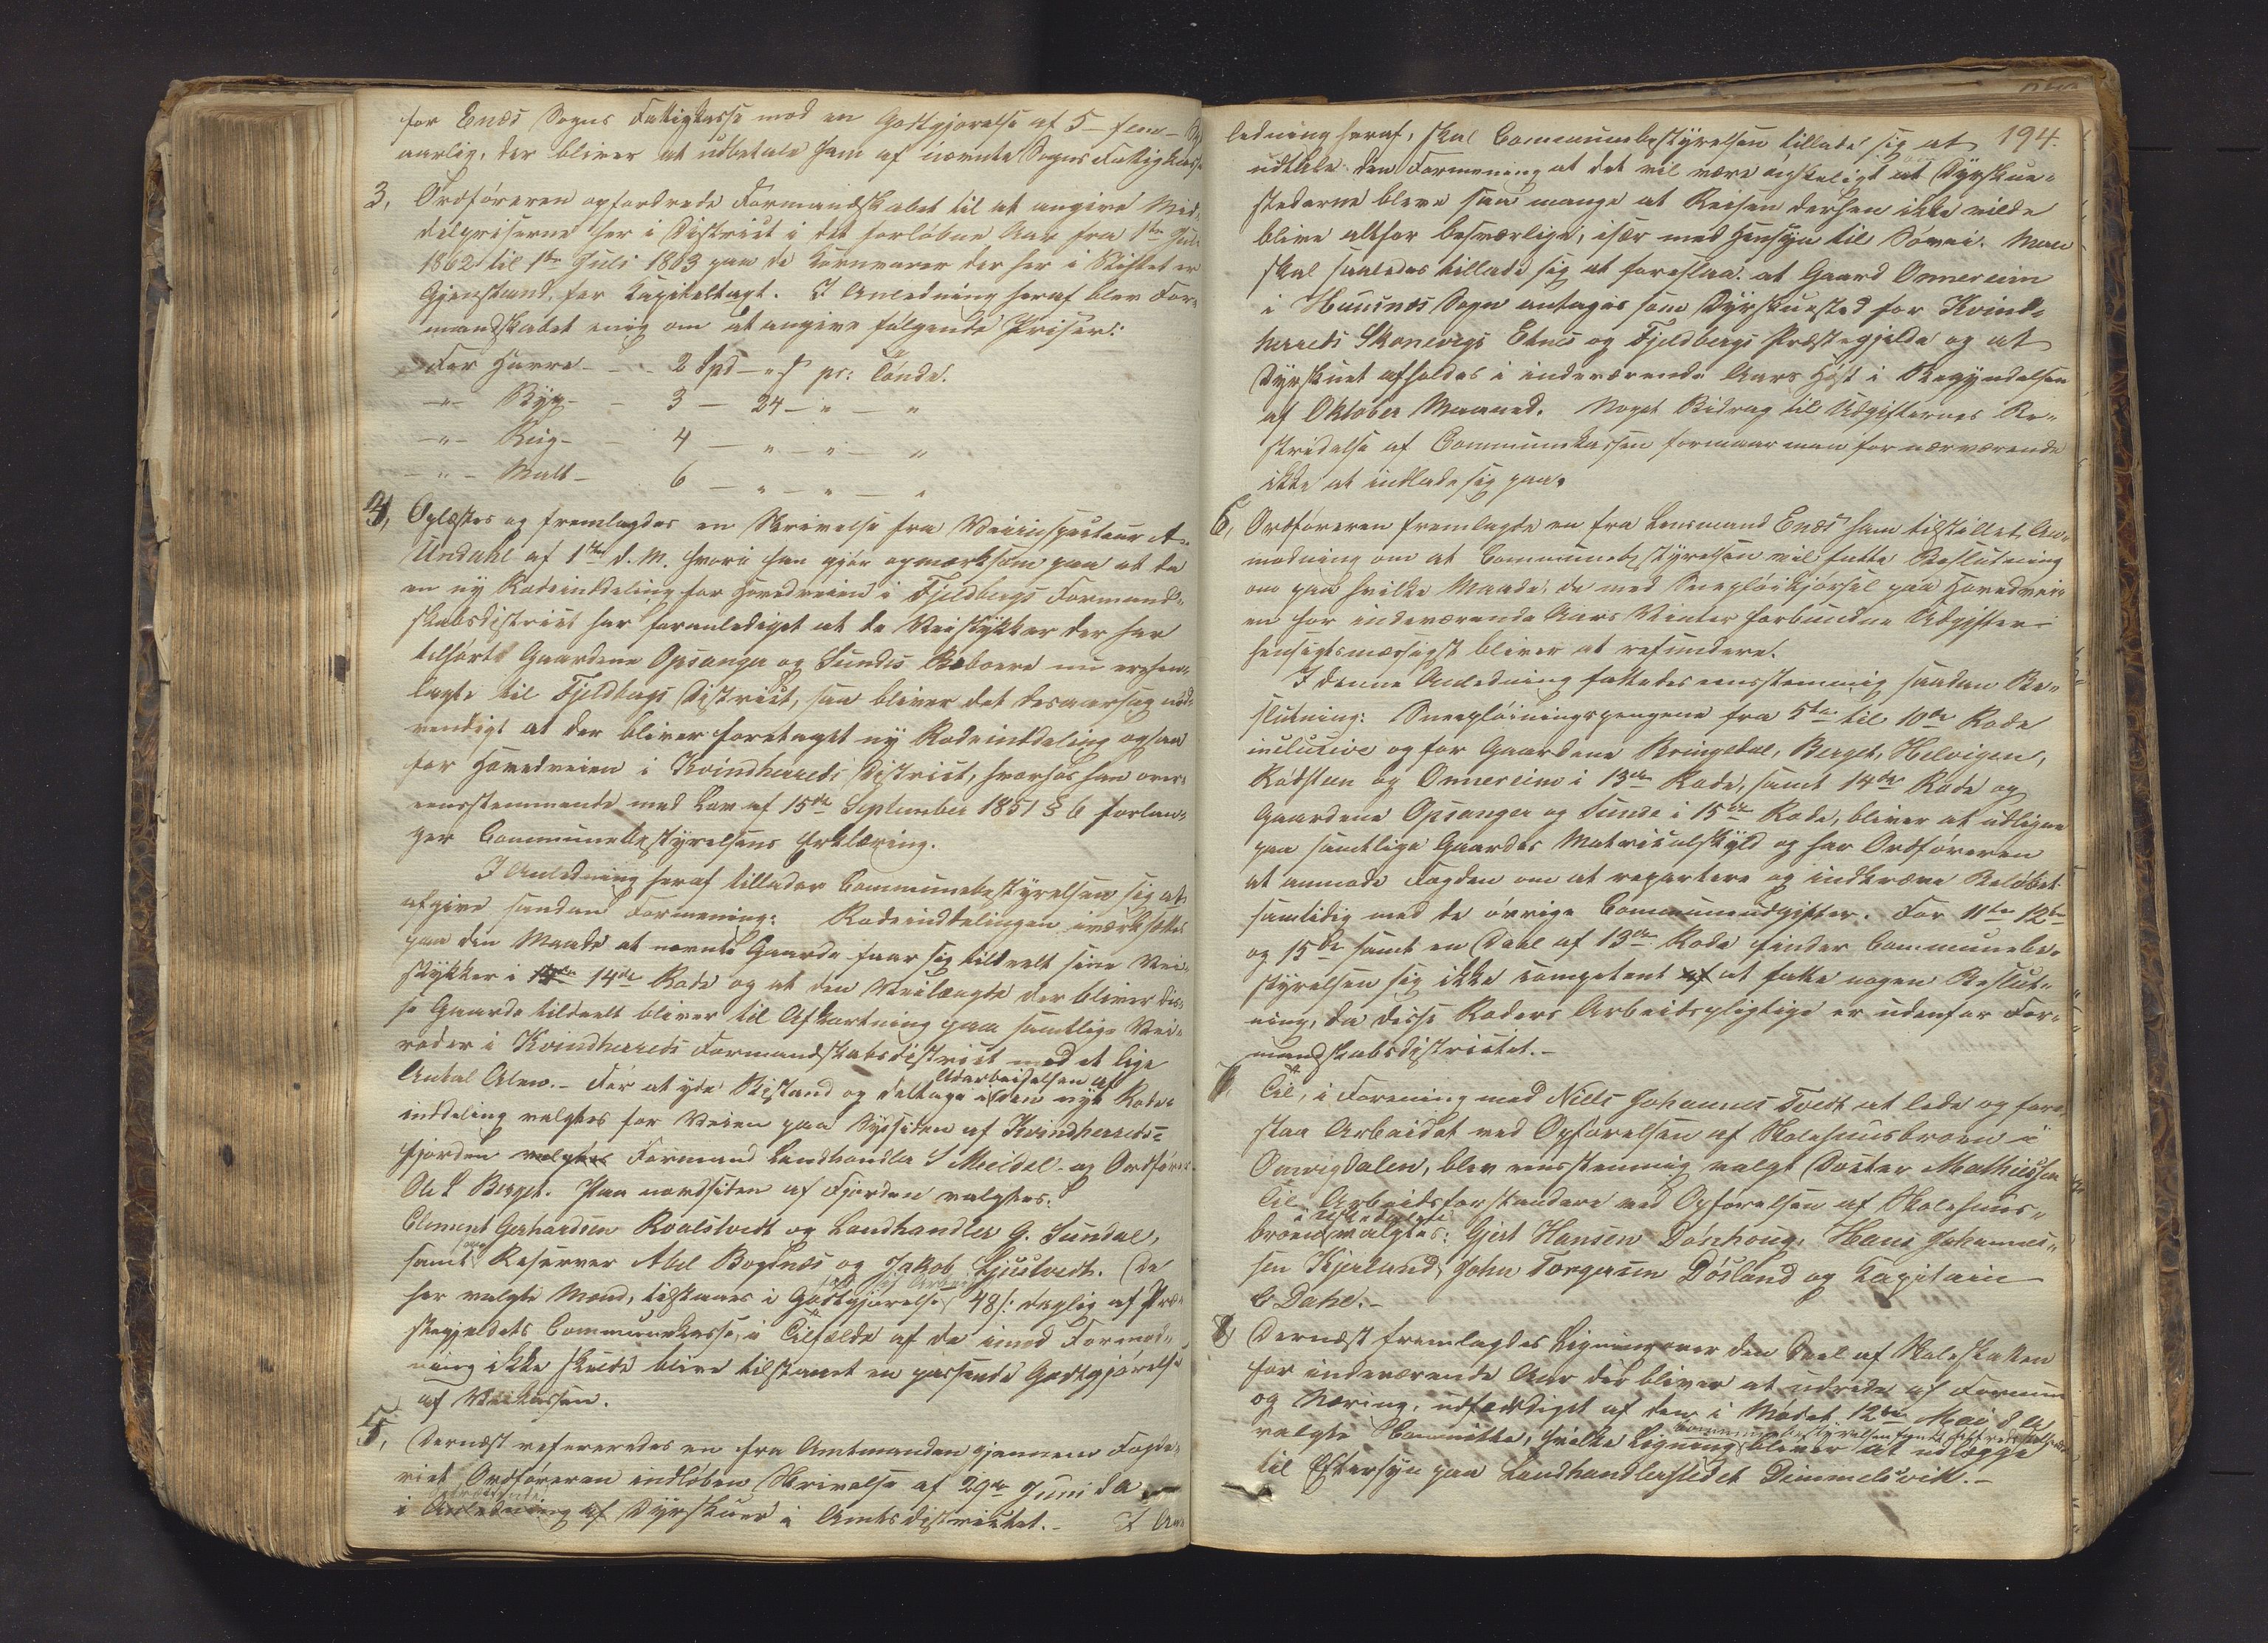 for Enæs Sogns Fattigkasse mod en Godtgjørelse af 5 - fem - Spd
aarlig, der bliver at udbetale ham af nævnte Sogns Fattigkasse
3, Ordføreren opfordrede Formandskabet til at angive Mid-
delpriserne her i District i det forløbne Aar fra 1ste Juli
1862 til 1ste Juli 1863 paa de Kornvarer der her i Stiftet er
Gjenstand for Kapiteltagt. I Anledning heraf blev For-
mandskabet enig om at angive følgende Priser:
For Havre - - 2 Spd - " ß pr: Tønde.
-"- Byg - - 3 - 24 - " - "
-"- Rug - - 4 - " - " - "
-"- Malt - 6 - " - " - "
4, Oplæstes og fremlagdes en Skrivelse fra Veiinspecteur A.
Undahl af 1ste d. M. hvori han gjør opmærksom paa at da
en ny Rodeinddeling for Hovedveien i Fjeldbergs Formand-
skabsdistrict har foranlediget at de Veistykker der har
tilhørt Gaardene Opsanger og Sundes Beboere nu er hen-
lagte til Fjeldbergs District, saa bliver det desaarsag nød-
vendigt at der bliver foretaget ny Rodeinddeling ogsaa
for Hovedveien i Kvindherreds District, hvorhos han over-
eensstemmende med Lov af 15de September 1851 § 6 forlan-
ger Communebestyrelsens Erklæring.
I Anledning heraf tillader Communebestyrelsen sig at
afgive saadan Formening: Rodeinddelingen iværksættes
paa den Maade at nævnte Gaarde faar sig tildelt sine Vei-
stykker i 14de Rode og at den Veilængde der bliver dis-
se Gaarde tildeelt bliver til Afkortning paa samtlige Vei-
roder i Kvindherreds Formandskabsdistrict med et lige
Antal Alen. - For at yde Bistand og deltage i Udarbeidelsen af den nye Rode-
inddeling valgtes for Veien paa Sydsiden af Kvindherreds-
fjorden valgtes Formand Landhandler S Meidel og Ordfører
Ole L Berget. Paa nordsiden af Fjorden valgtes:
Clement Gerhardsen Roalstvedt og Landhandler G. Sundal,
samt som Reserver Abel Bogsnæs og Jakob Ljustvedt. De
her valgte Mænd, tilstaaes i Godtgjørelse 48 ß: daglig af Præ-
stegjeldets Communekasse, i Tilfælde af de imod Formod-
ning ikke skulde blive tilstaaet en passende Godtgjørelse
af Veikassen.
5, Dernæst refereredes en fra Amtmanden gjennem Fogde-
riet Ordføreren indløben Skrivelse af 29de Juni d A
i Anledning af Dyrskuer i Amtsdistrictet. - I An-
194.
ledning heraf, skal Communebestyrelsen tillade sig at
udtale den Formening at det vil være ønskeligt at Dyrskue-
stederne bleve saa mange at Reisen dershen ikke vilde
blive altfor besværlige, især med Hensyn til Søvei. Man
skal saaledes tillade sig at foreslaa: at Gaard Omereim
i Huusnæs Sogn antages som Dyrskuested for Kvind-
herreds Skonevigs Etnes og Fjeldbergs Præstegjelde og at
Dyrskuet afholdes i indeværende Aars Høst i Begyndelsen
af Oktober Maaned. Noget Bidrag til Udgifternes Be-
stridelse af Communekassen formaar man for nærværende
ikke at indlade sig paa.
6, Ordføreren fremlagte en fra Lensmand Enæs ham tilstillet An-
modning om at Communebestyrelsen vil fatte Beslutning
om paa hvilke Maade, de med Sneploikjørsel paa Hovedvei-
en for indeværende Aars Vinter forbundne Udgifter
hensigtsmæssigst bliver at refundere.
I denne Anledning fattedes eensstemmig saadan Be-
slutning: Sneepløiningspengene fra 5te til 10de Rode
inclusive og for Gaardene Bringedal, Berget, Helvigen,
Rødsteen og Omereim i 13de Rode, samt 14de Rode og
Gaardene Opsanger og Sunde i 15de Rode, bliver at udligne
paa samtlige Gaardes Matriculskyld og har Ordføreren
at anmode Fogden om at repartere og indkræve Beløbet
samtidig med de øvrige Communeudgifter. For 11te 12te
og 15de samt en Deel af 13de Rode finder Communebe-
styrelsen sig ikke competent at fatte nogen Beslut-
ning, da disse Roders Arbeidspligtige er udenfor For-
mandskabsdistrictet. -
7, Til, i Forening med Niels Johannes Tvedt at lede og fore-
staa Arbeidet ved Opførelsen af Skolehuusbroen i
Omvigdalen, blev eensstemmig valgt Doctor Mathiesen
Til Arbeidsforstandere ved Opførelsen af Skolehuus-
broen i valgtes: Gjert Hansen Dønhoug, Hans Johannes-
sen Kjerland, John Torgersen Døsland og Kapitain
C Dahl. -
8, Dernæst fremlagdes Ligning over den Deel af Skoleskatten
for indeværende Aar der bliver at udrede af Formue
og Næring, udfærdiget af den i Mødet 12te Mai d A
valgte Committe, hvilke Ligning Communebestyrelsen bliver at udlægge
til Eftersyn paa Landhandlerstedet Dimmelsvik. -